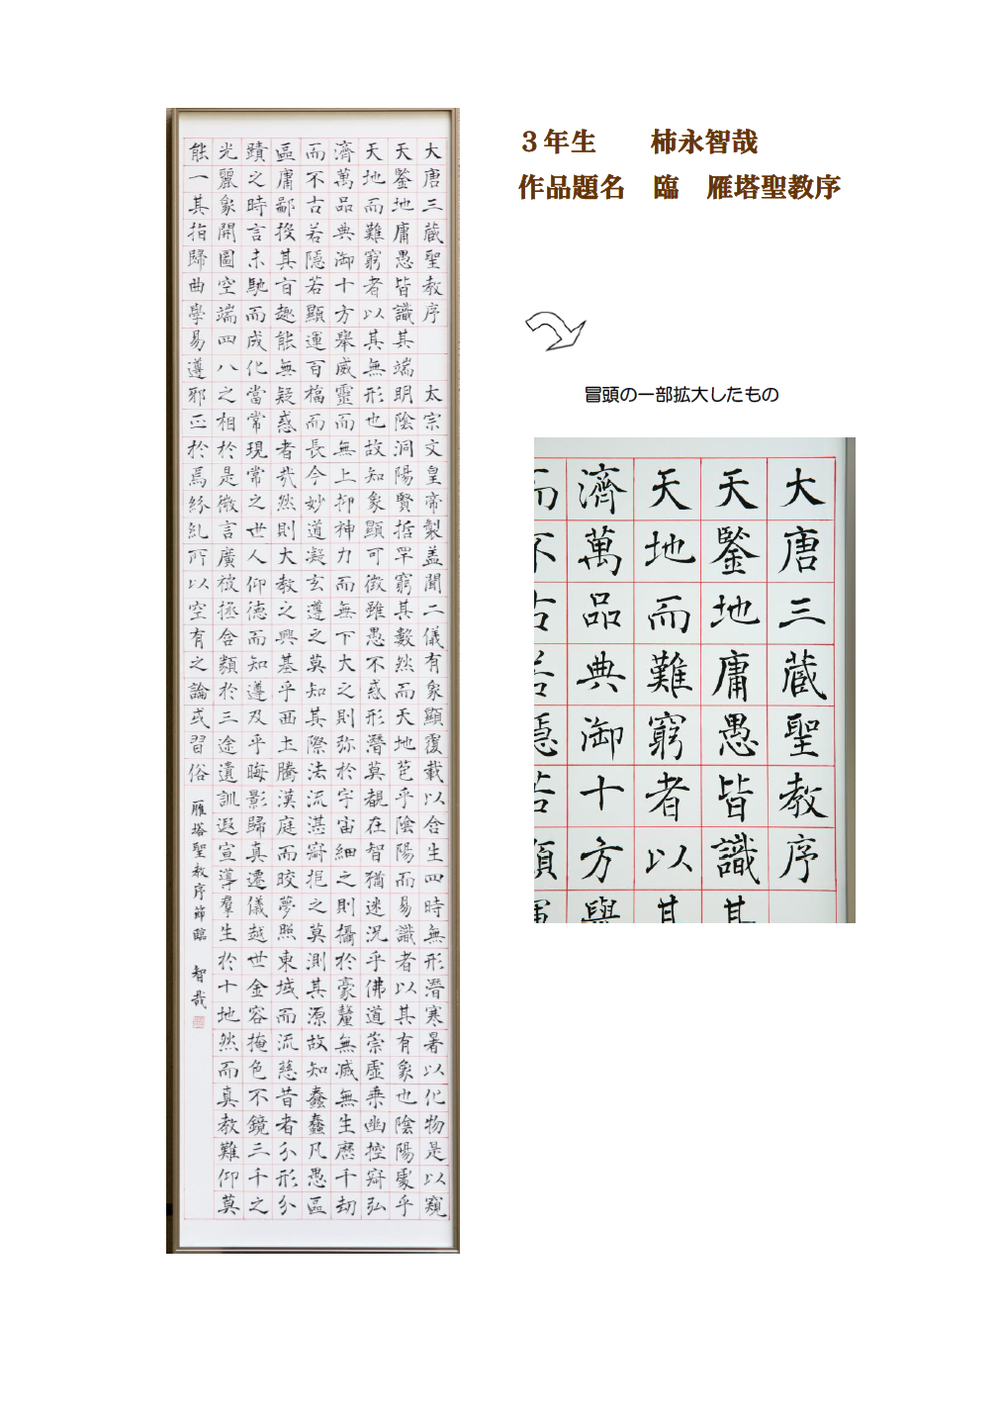 ３年生　　柿永智哉
作品題名　臨　雁塔聖教序
大唐三蔵聖教序　太宗文皇帝製蓋聞二儀有象顯覆載以含生四時無形潛寒暑以化物是以窺
天鑒地庸愚皆識其端明陰洞陽賢哲罕窮其數然而天地苞乎陰陽而易識者以其有象也陰陽處乎
天地而難窮者以其無形也故知象顯可徵雖愚不惑形潛莫覩在智猶迷況乎佛道崇虛乗幽控寂弘
濟萬品典御十方舉威靈而無上抑神力而無下大之則弥於宇宙細之則攝於豪釐無滅無生歷千劫
而不古若隱若顯運百福而長今妙道凝玄遵之莫知其際法流湛寂挹之莫測其源故知蠢蠢凡愚區
區庸鄙投其旨趣能無疑惑者哉然則大教之興基乎西土騰漢庭而皎夢照東域而流慈昔者分形分
蹟之時言未馳而成化當常現常之世人仰德而知遵及乎晦影歸真遷儀越世金容掩色不鏡三千之
光麗象開圖空端四八之相於是微言廣被拯含類於三途遺訓遐宣導羣生於十地然而真教難仰莫
能一其指歸曲學易遵邪正於焉紛糺所以空有之論或習俗
雁塔聖教序節臨　智哉
冒頭の一部拡大したもの
大唐三蔵聖教序
天鑒地庸愚皆識其
天地而難窮者以其
濟萬品典御十方舉
而不古若隱若顯運